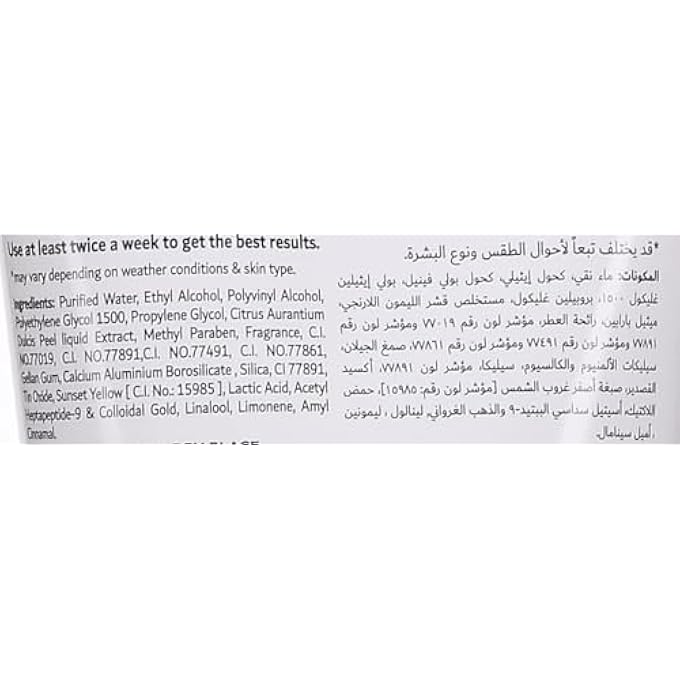 Use at least twice a week to get the best results.
*may vary depending on weather conditions & skin type.
Ingredients: Purified Water, Ethyl Alcohol, Polyvinyl Alcohol,
Polyethylene Glycol 1500, Propylene Glycol, Citrus Aurantium
Dulcis Peel liquid Extract, Methyl Paraben, Fragrance, C.I.
NO.77019, C.I. NO.77891,C.I. NO.77491, C.I. NO.77861,
Gellan Gum, Calcium Aluminium Borosilicate , Silica, CI 77891,
Tin Oxide, Sunset Yellow [ C.I. No.: 15985 ], Lactic Acid, Acetyl
Heptapeptide-9 & Colloidal Gold, Linalool, Limonene, Amyl
Cinnamal.
*قد يختلف تبعاً لأحوال الطقس ونوع البشرة.
المكونات: ماء نقي، كحول إيثيلي، كحول بولي فينيل، بولي إيثيلين
غليكول ١٥٠٠، بروبيلين غليكول، مستخلص قشر الليمون اللارنجي،
ميثيل بارابين، رائحة العطر، مؤشر لون رقم ٧٧٠١٩ ومؤشر لون رقم
٧٧٨٩١ ومؤشر لون رقم ٧٧٤٩١ ومؤشر لون رقم ٧٧٨٦١، صمغ الجيلان،
سيليكات الألمنيوم والكالسيوم، سيليكا، مؤشر لون ٧٧٨٩١، أكسيد
القصدير، صبغة أصفر غروب الشمس [مؤشر لون رقم: ١٥٩٨٥]، حمض
اللاكتيك، أسيتيل سداسي الببتيد-٩ والذهب الغرواني, لينالول ، ليمونين
، أميل سينامال.